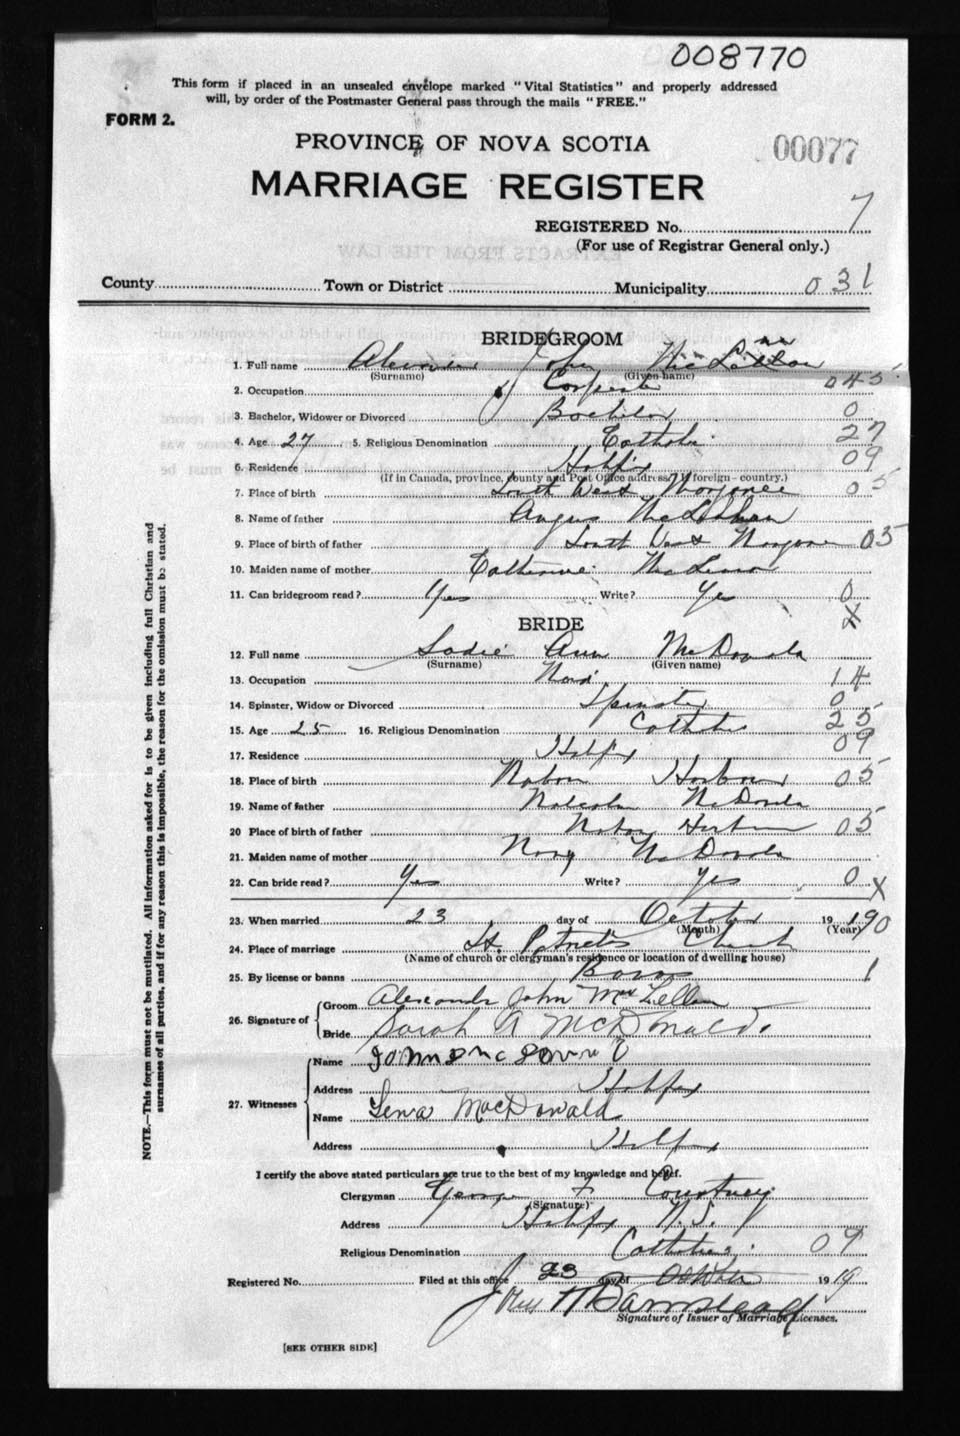 008770
This form if placed in an unsealed envelope marked "Vital Statistics" and properly addressed
will, by order of the Postmaster General pass through the mails "FREE."
FORM 2.
PROVINCE OF NOVA SCOTIA
00077
MARRIAGE REGISTER
REGISTERED No. 7
(For use of Registrar General only.)
County Town or District Municipality 031
BRIDEGROOM
1. Full name John
(Surname) (Given name)
2. Occupation Carpenter 045
3. Bachelor, Widower or Divorced Bachelor 0
4. Age 27 5. Religious Denomination Catholic 27
6. Residence Halifax 09
(If in Canada, province, county and Post Office address; if foreign - country.)
7. Place of birth South West Margaree 05
8. Name of father Angus McLellan
9. Place of birth of father South West Margaree 05
10. Maiden name of mother Catherine
11. Can bridegroom read? Yes Write? Yes 0
BRIDE
12. Full name Sadie Ann McDonald
(Surname) (Given name)
13. Occupation Maid 14
14. Spinster, Widow or Divorced Spinster 0
15. Age 25 16. Religious Denomination Catholic 25
17. Residence Halifax 09
18. Place of birth Mabou Harbour 05
19. Name of father Malcolm McDonald
20 Place of birth of father Mabou Harbour 05
21. Maiden name of mother Mary McDonald
22. Can bride read? Yes Write? Yes 0 X
23. When married 23 day of October 19 19 0
(Month) (Year)
24. Place of marriage St. Patrick's Church
(Name of church or clergyman's residence or location of dwelling house)
25. By license or banns Banns 1
26. Signature of
Groom Alexander John McLellan
Bride Sarah A McDonald.
27. Witnesses
Name
Address Halifax
Name Lena MacDonald
Address Halifax
I certify the above stated particulars are true to the best of my knowledge and belief.
Clergyman George F Courtney
(Signature)
Address Halifax N.S.
Religious Denomination Catholic 09
Registered No. Filed at this office 23 day of October 19 19
Barnstead
Signature of Issuer of Marriage Licenses.
[SEE OTHER SIDE]
NOTE.—This form must not be mutilated. All information asked for is to be given including full Christian and
surnames of all parties, and if for any reason this is impossible, the reason for the omission must be stated.